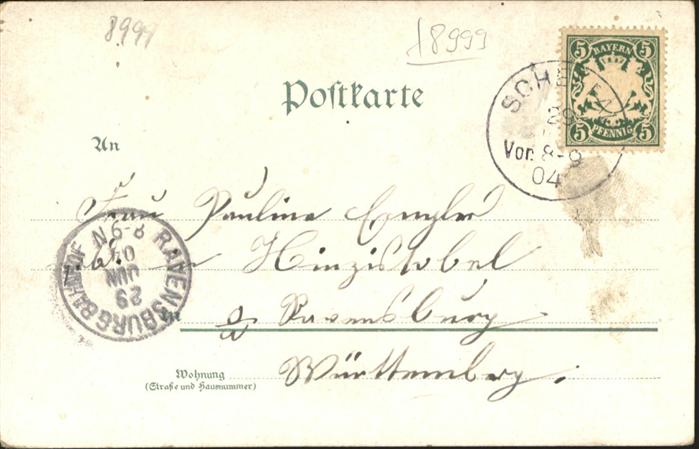 8999
18999
5 BAYERN 5
5 PFENNIG 5
Postkarte
SCH
29
Vor. 8-9
04
An
Frau Pauline Engler
Hinzistobel
Ravensburg
Württemberg.
RAVENSBURG BAHNHOF
29
JUN
04
8-9 N
Wohnung
(Straße und Hausnummer)